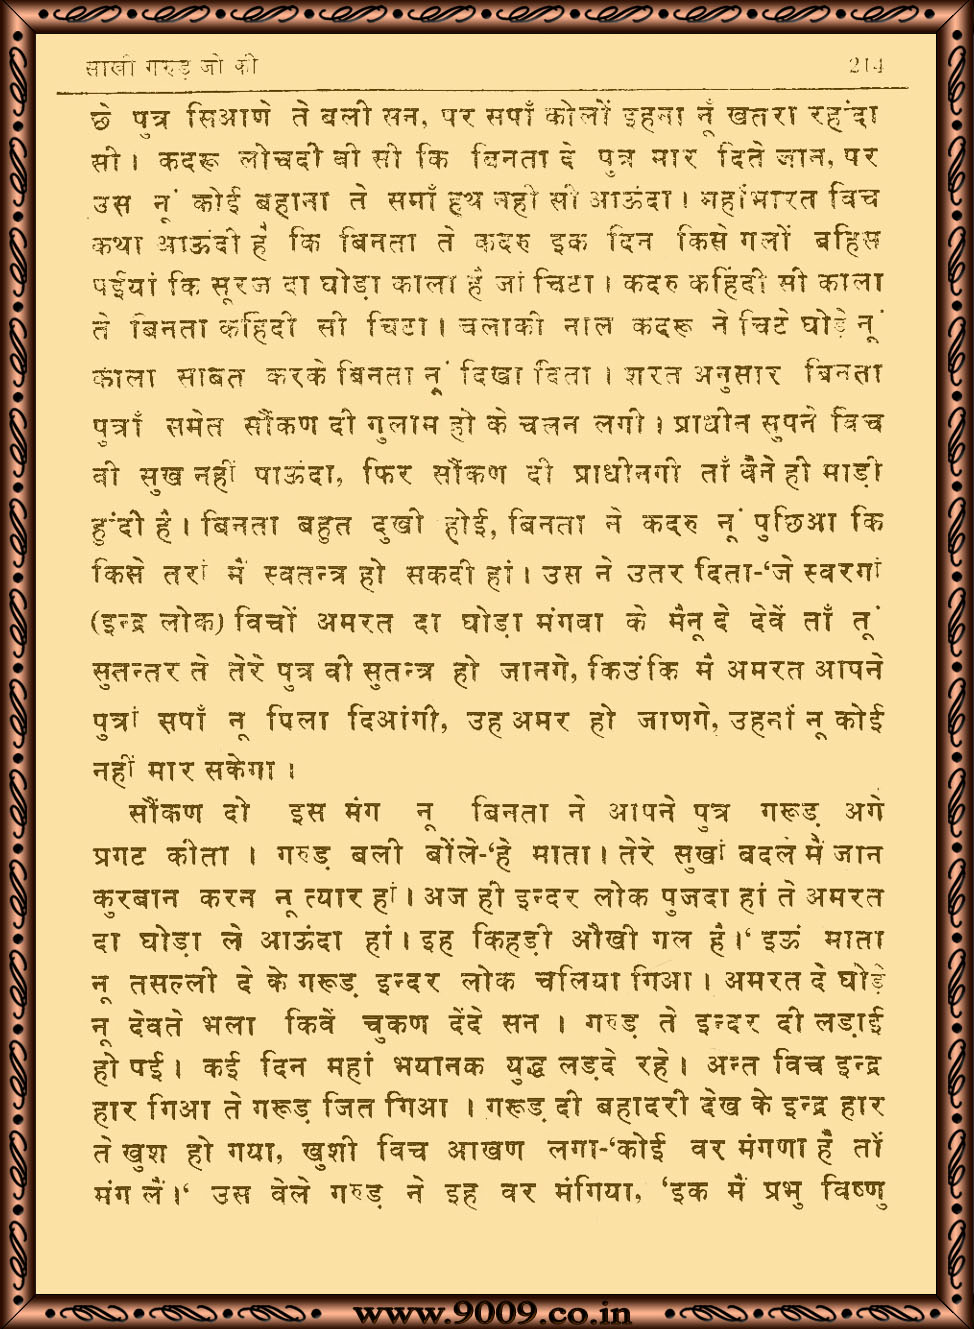 साखी गरुड़ जी की 214
छे पुत्र सिआणे ते बली सन, पर सपाँ कोलों इहना नूँ खतरा रहंदा
सी। कदरू लोचदी बी सी कि बिनता दे पुत्र मार दिते जान, पर
उस नूं कोई बहाना ते समाँ हथ नहीं सी आऊंदा। महांभारत विच
कथा आऊंदी है कि बिनता ते कदरु इक दिन किसे गलों बहिस
पईयां कि सूरज दा घोड़ा काला है जां चिटा। कदरु कहिंदी सी काला
ते बिनता कहिंदी सी चिटा। चलाकी नाल कदरू ने चिटे घोड़े नूं
काला साबत करके बिनता नूं दिखा दिता। शरत अनुसार बिनता
पुत्राँ समेत सौंकण दी गुलाम हो के चलन लगी। प्राधीन सुपने विच
वी सुख नहीं पाऊंदा, फिर सौंकण दी प्राधीनगी ताँ वैने ही माड़ी
हुंदी है। बिनता बहुत दुखी होई, बिनता ने कदरु नूं पुछिआ कि
किसे तरां मैं स्वतन्त्र हो सकदी हां। उस ने उतर दिता-‘जे स्वरगां
(इन्द्र लोक) विचों अमरत दा घोड़ा मंगवा के मैनू दे देवें ताँ तूं
सुतन्तर ते तेरे पुत्र वी सुतन्त्र हो जानगे, किउंकि मैं अमरत आपने
पुत्रां सपाँ नू पिला दिआंगी, उह अमर हो जाणगे, उहनाँ नू कोई
नहीं मार सकेगा।
सौंकण दो इस मंग नू बिनता ने आपने पुत्र गरूड़ अगे
प्रगट कीता। गरुड़ बली बोंले-‘हे माता। तेरे सुखां बदले मैं जान
कुरबान करन नू त्यार हां। अज ही इन्दर लोक पुजदा हां ते अमरत
दा घोड़ा ले आऊंदा हां। इह किहड़ी औखी गल है।‘ इऊं माता
नू तसल्ली दे के गरूड़ इन्दर लोक चलिया गिआ। अमरत दे घोड़े
नू देवते भला किवें चुकण देंदे सन। गरुड़ ते इन्दर दी लड़ाई
हो पई। कई दिन महां भयानक युद्ध लड़दे रहे। अन्त विच इन्द्र
हार गिआ ते गरूड़ जित गिआ। गरूड़ दी बहादरी देख के इन्द्र हार
ते खुश हो गया, खुशी विच आखण लगा-‘कोई वर मंगणा है तों
मंग लैं।‘ उस वेले गरुड़ ने इह वर मंगिया, ‘इक मैं प्रभु विष्णु
www.9009.co.in